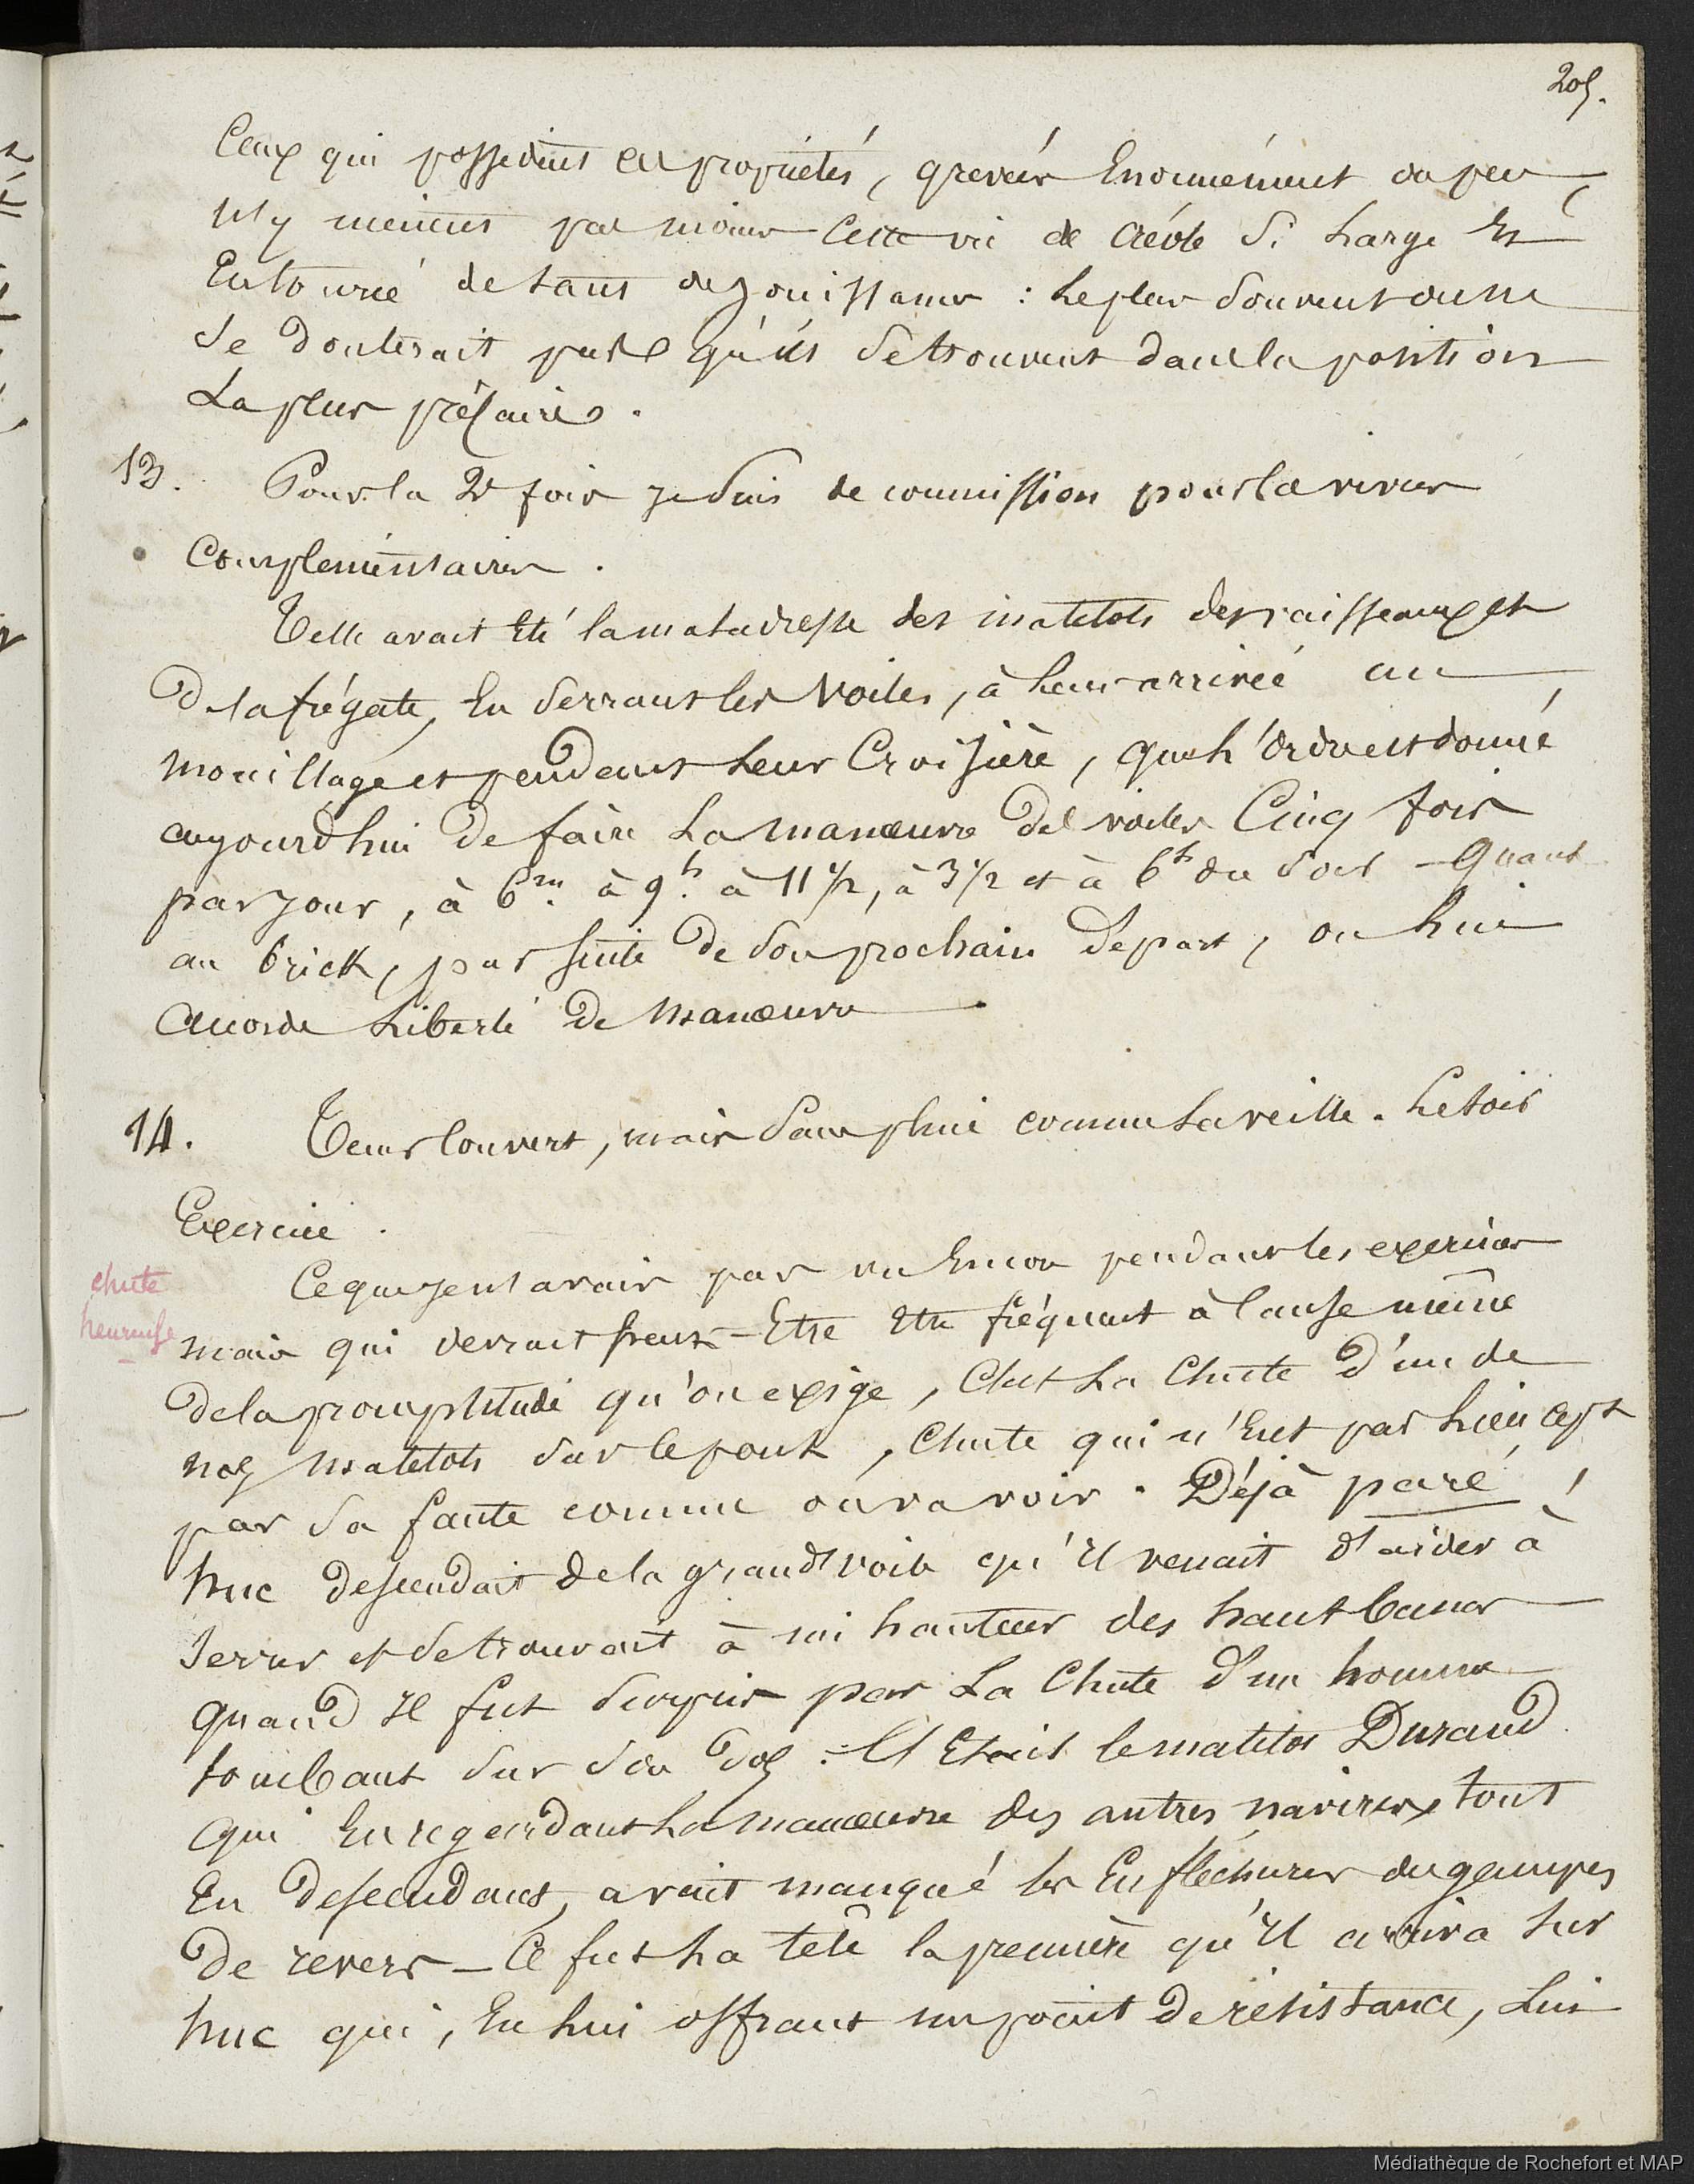 205.
Ceux qui possedent ces propriétés, grevées Enormément ou peu,
N'y meinent pas moins cette vie de créole si Large Et
Entourée de tant de jouissances : Le plus souvent on ne
se douterait pas qu'ils se trouvent dans la position
La plus précaire.
13. Pour la 2e fois je suis de commission pour les vivres
complémentaires.
Telle avait été la maladresse des matelots des vaisseaux et
De la frégate, En serrant les Voiles, à Leur arrivée au
mouillage et pendant Leur Croisière, que L'ordre est donné
aujourd'hui De faire La manœuvre Des voiles Cinq fois
par jour, à 6m. à 9h. à 11 1/2, à 3 1/2 et à 6h du soir - Quant
au brick, par suite De son prochain Départ, on Lui
accorde Liberté De Manœuvre.
14. Tems Couvert, mais sans pluie comme La veille. Le soir
Exercice.
chute
heureuse
Ce que je n'avais pas vu Encore pendant les exercices
mais qui devrait peut-Etre Etre fréquent à cause même
De la promptitude qu'on exige, C'est La Chute D'un de
nos Matelots sur le pont, Chute qui n'Eut pas Lieu
par sa faute comme on va voir. Déjà paré,
Luc descendait De la grand voile qu'Il venait D'aider à
serrer et se trouvait à mi hauteur des haut bancs
quand Il fut surpris par La Chute D'un homme
tombant sur son Dos : C'Etait le matelot Durand
qui En regardant La manœuvre des autres navires, tout
En Descendant, avait manqué les Enfléchures des gampes
De revers - Ce fut La tête la première qu'Il arriva sur
Luc qui, En Lui offrant un point De résistance, Lui
Médiathèque de Rochefort et MAP